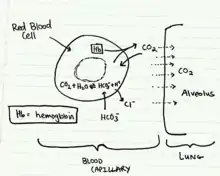 Red Blood
Cell
Hb
CO₂
CO₂ + H₂O ⇌ HCO₃⁻ + H⁺
CO₂
Alveolus
Cl⁻
HCO₃⁻
Hb = hemoglobin
BLOOD
CAPILLARY
LUNG